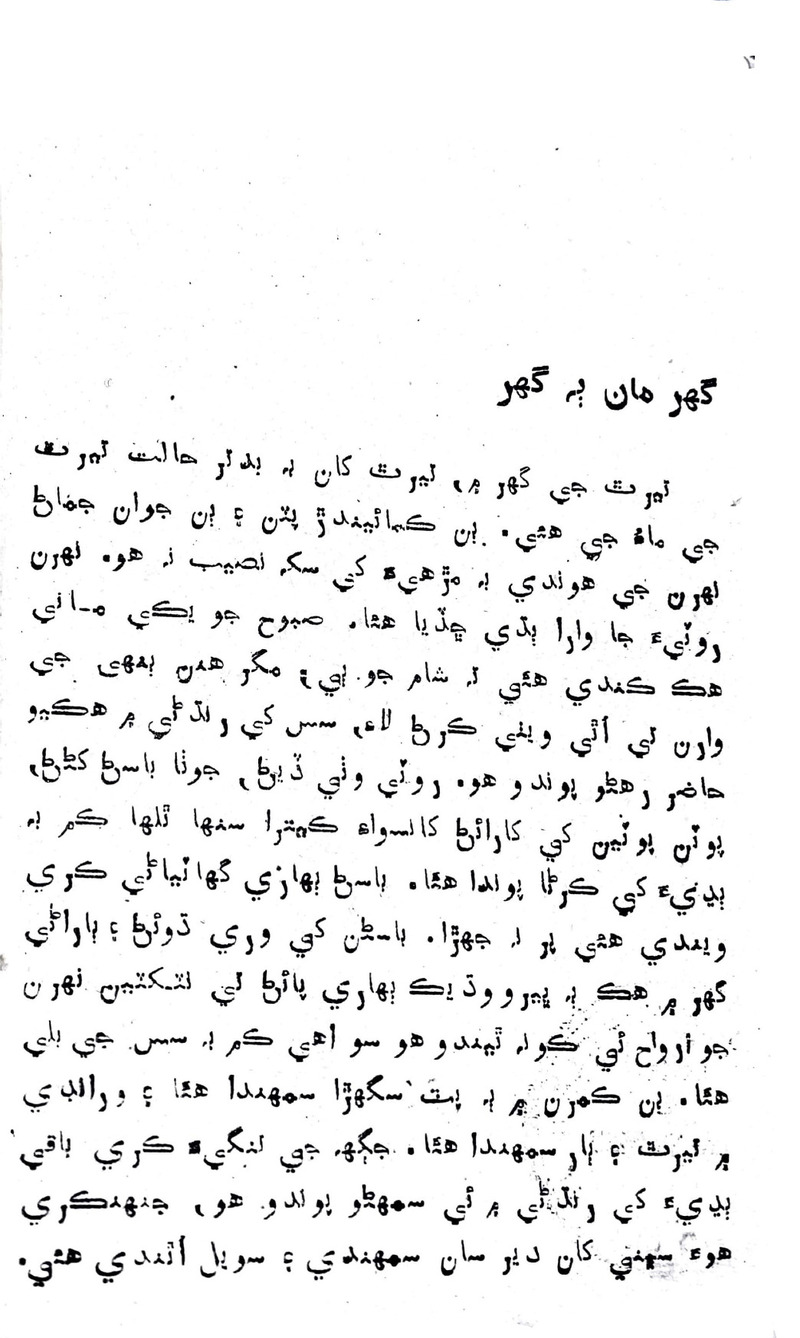 ۲
گهر مان ٻه گهر
تيرٿ جي گهر ۾، تيرٿ کان به بدتر حالت تيرٿ
جي ماءُ جي هئي. ٻن ڪمائيندڙ پٽن ۽ ٻن جوان جمان
نهرن جي هوندي به مڙهيءَ کي سک نصيب نه هو. نهرن
روٽيءَ جا وارا ٻڌي ڇڏيا هئا. صبوح جو يڪي ماني
هڪ ڪندي هئي ته شام جو ٻي؛ مگر هنن ٻنهي جي
وارن تي اُتي ويٺي ڪرڻ لاءِ، سس کي رنڌڻي ۾ هڪيو
حاضر رهڻو پوندو هو. روٽي وٺي ڏيڻ، جوٺا باسڻ کڻڻ،
پوٽن پوٽين کي کارائڻ کانسواءِ ڪيترا سنها ٿلها ڪم به
ٻڍيءَ کي ڪرڻا پوندا هئا. باسڻ ٻهاري گهاٽياڻي ڪري
ويندي هئي پر نه جهڙا. باسڻن کي وري ڌوئڻ ۽ ٻاراڻي
گهر ۾ هڪ ٻه ڀيرو وڌيڪ ٻهاري پائڻ تي نٽڪٽين نهرن
جو ارواح ئي ڪونه ٿيندو هو سو اهي ڪم به سس جي بلي
هئا. ٻن ڪمرن ۾ ٻه پٽ سگهڙا سمهندا هئا ۽ ورانڊي
۾ تيرٿ ۽ ٻار سمهندا هئا. جڳهه جي تنگيءَ ڪري باقي
ٻڍيءَ کي رنڌڻي ۾ ئي سمهڻو پوندو هو، جنهنڪري
هوءَ سڀني کان دير سان سمهندي ۽ سويل اُٿندي هئي.